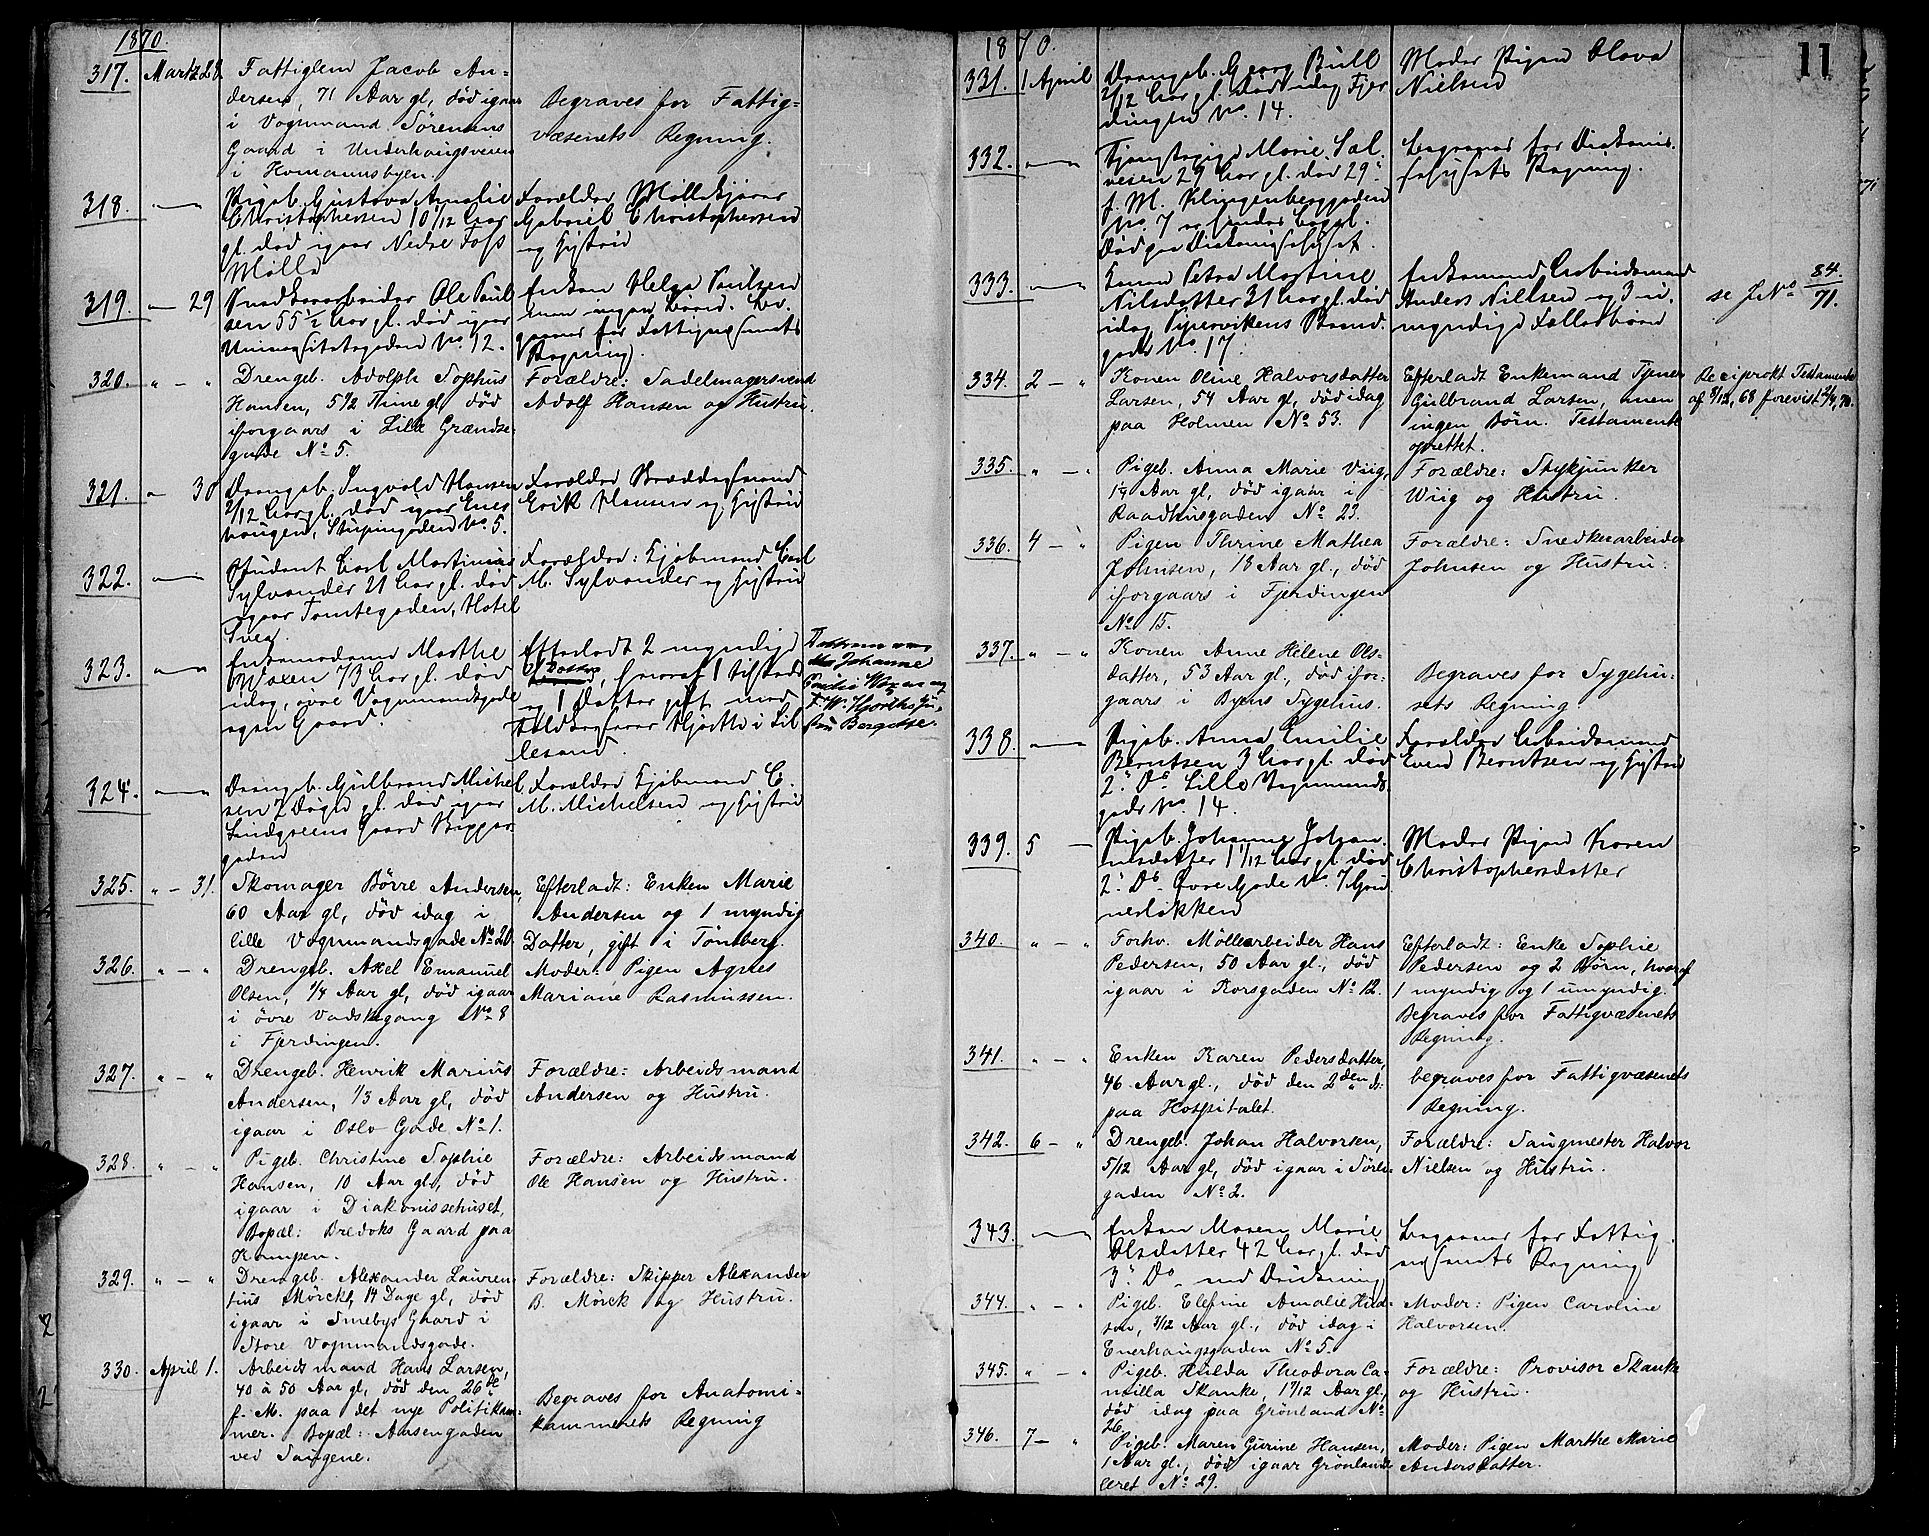 1870.
317. Martz 28. Fattiglem Jacob An-
dersen, 71 Aar gl, död igaar
i Vognmand Sörensens
Gaard i Underhaugsveien
i Homannsbyen.
Begraves for Fattig-
væsenets Regning.
318. Pigeb. Gustava Amalie
Christophersen 10/12 Aar
gl. död igaar Nedre Foss
Mölle
Forældre Möllekjörer
Gabriel Christophersen
og Hustru
319. — 29 Snedkerarbeider Ole Paul
sen 55 1/2 Aar gl. död igaar
Universitetsgaden No. 12.
Enken Helga Paulsen
men ingen Börn. Be-
graves for Fattigvæsenets
Regning.
320. " — " Drengeb. Adolph Sophus
Hansen, 5 1/2 Time gl, död
iforgaars i Lille Grændse-
gade No 5.
Forældre: Sadelmagersvend
Adolf Hansen og Hustru.
321. — 30 Drengeb. Ingvald Hansen
2/12 Aar gl. död igaar Ener
haugen, Stupingaden No. 5.
Forældre
Erik Hansen og Hustru
322. Student Carl Martinius
Sylvander 21 Aar gl. död
igaar Tomtegaden, Hotel
Svea.
Forældre: Kjöbmand Carl
M. Sylvander og Hustru
323. Enkemadame Marthe
Waxen 73 Aar gl. död
idag, övre Vognmandsgade
egen Gaard.
Efterladt 2 myndige
Döttre, hvoraf 1 tilstede
og 1 Datter gift med
Hjorth i Lil
lesand.
Johanne
324. Drengeb. Gulbrand Michel
sen 7 Dage gl. död igaar
Lindgreens Gaard
gaden
Forældre Kjöbmand C.
M. Michelsen og Hustru
325. " — 31. Skomager Börre Andersen,
60 Aar gl, död idag i
lille Vognmandsgade No 20.
Efterladt: Enken Marie
Andersen og 1 myndig
Datter, gift i Tönsberg.
326. " — " Drengeb. Axel Emanuel
Olsen, 1/4 Aar gl, död igaar
i övre Vadskegang No 8
i Fjerdingen.
Moder: Pigen Agnes
Mariane Rasmussen.
327. " — " Drengeb. Henrik Marius
Andersen, 1/3 Aar gl, död
igaar i Oslo Gade No 1.
Forældre: Arbeidsmand
Andersen og Hustru.
328. " — " Pigeb. Christine Sophie
Hansen, 10 Aar gl, död
igaar i Diakonissehuset,
Bopæl: Bredoks Gaard paa
Kampen.
Forældre: Arbeidsmand
Ole Hansen og Hustru.
329. " — " Drengeb. Alexander Lauren-
tius Mörck, 14 Dage gl, död
igaar i Smebys Gaard i
Store Vognmandsgade.
Forældre: Skipper Alexander
B. Mörck og Hustru.
330. April 1. Arbeidsmand Hans Larsen,
40 à 50 Aar gl, död den 26de
f. M. paa det nye Politikam-
mer. Bopæl: Aasengaden
ved Saugene.
Begraves for Anatomi-
kammerets Regning
1870.
11
331. 1 April Drengeb. Georg Bull
2/12 Aar gl. död idag Fjer
dingen No. 14.
Moder Pigen Olava
Nielsen
332. Tjenestepige Marie Hal-
vesen 29 Aar gl. död 29.
f. M. Klingenberggaden
No. 7
Död paa Diakonissehuset.
Begraves for Diakonis-
sehusets Regning.
333. Konen Petra Martine
Nilsdatter 31 Aar gl. död
idag Pipervikens Strand-
gade No. 17.
Enkemand Arbeidsmand
Anders Nielsen og 3 u-
myndige Fællesbörn
se J No 84/71.
334. 2 — " Konen Oline Halvorsdatter
Larsen, 54 Aar gl, död idag
paa Holmen No 53.
Efterladt Enkemand Tjener
Gulbrand Larsen, men
ingen Börn. Testamente
oprettet.
Reciprokt Testamente
af 9/12, 68 forevist 2/4, 70.
335. " — " Pigeb. Anna Marie Wiig,
1/4 Aar gl, död igaar i
Raadhusgaden No 23.
Forældre: Stykjunker
Wiig og Hustru.
336. 4 — " Pigen Thrine Mathea
Johnsen, 13 Aar gl., död
iforgaars i Fjerdingen
No 15.
Forældre: Snedkerarbeider
Johnsen og Hustru.
337. " — " Konen Anne Helene Ols-
datter, 53 Aar gl, död ifor-
gaars i Byens Sygehus.
Begraves for Sygehu-
sets Regning
338. Pigeb. Anna Emilie
Berntsen 3 Aar gl. död
2. Ds. Lille Vognmands-
gade No. 14.
Forældre Arbeidsmand
Even Berntsen og Hustru
339. 5 — Pigeb. Johanne Johan-
nesdatter 1 1/12 Aar gl. död
2. Ds. Övre Gade No. 7 Grü
nerlökken
Moder Pigen Karen
Christophersdatter
340. " — " Forhv. Möllearbeider Hans
Pedersen, 50 Aar gl., död
igaar i Korsgaden No 12.
Efterladt: Enke Sophie
Pedersen og 2 Börn, hvoraf
1 myndig og 1 umyndig.
Begraves for Fattigvæsenets
Regning.
341. " — " Enken Karen Pedersdatter,
46 Aar gl., död den 2den ds.
paa Hospitalet.
begraves for Fattigvæsenets
Regning.
342. 6 — " Drengeb. Johan Halvorsen,
5/12 Aar gl, död igaar i Sörli-
gaden No 2.
Forældre: Saugmester Halvor
Nielsen og Hustru.
343. Enken Maren Marie
Olsdatter 42 Aar gl. död
3. Ds. ved Drukning
Begraves for Fattig-
væsenets Regning
344. " — " Pigeb. Elefine Amalie Hud-
son, 3/12 Aar gl., död idag i
Enerhaugsgaden No 5.
Moder: Pigen Caroline
Halvorsen.
345. " — " Pigeb. Hulda Theodora Ca-
milla Skanke, 1 9/12 Aar gl,
död idag paa Grönland No
26.
Forældre: Provisor Skanke
og Hustru.
346. 7 — " Pigeb. Maren Gurine Hansen,
1 Aar gl, död igaar Grönlands
leret No 29.
Moder: Pigen Marthe Marie
Andersdatter.